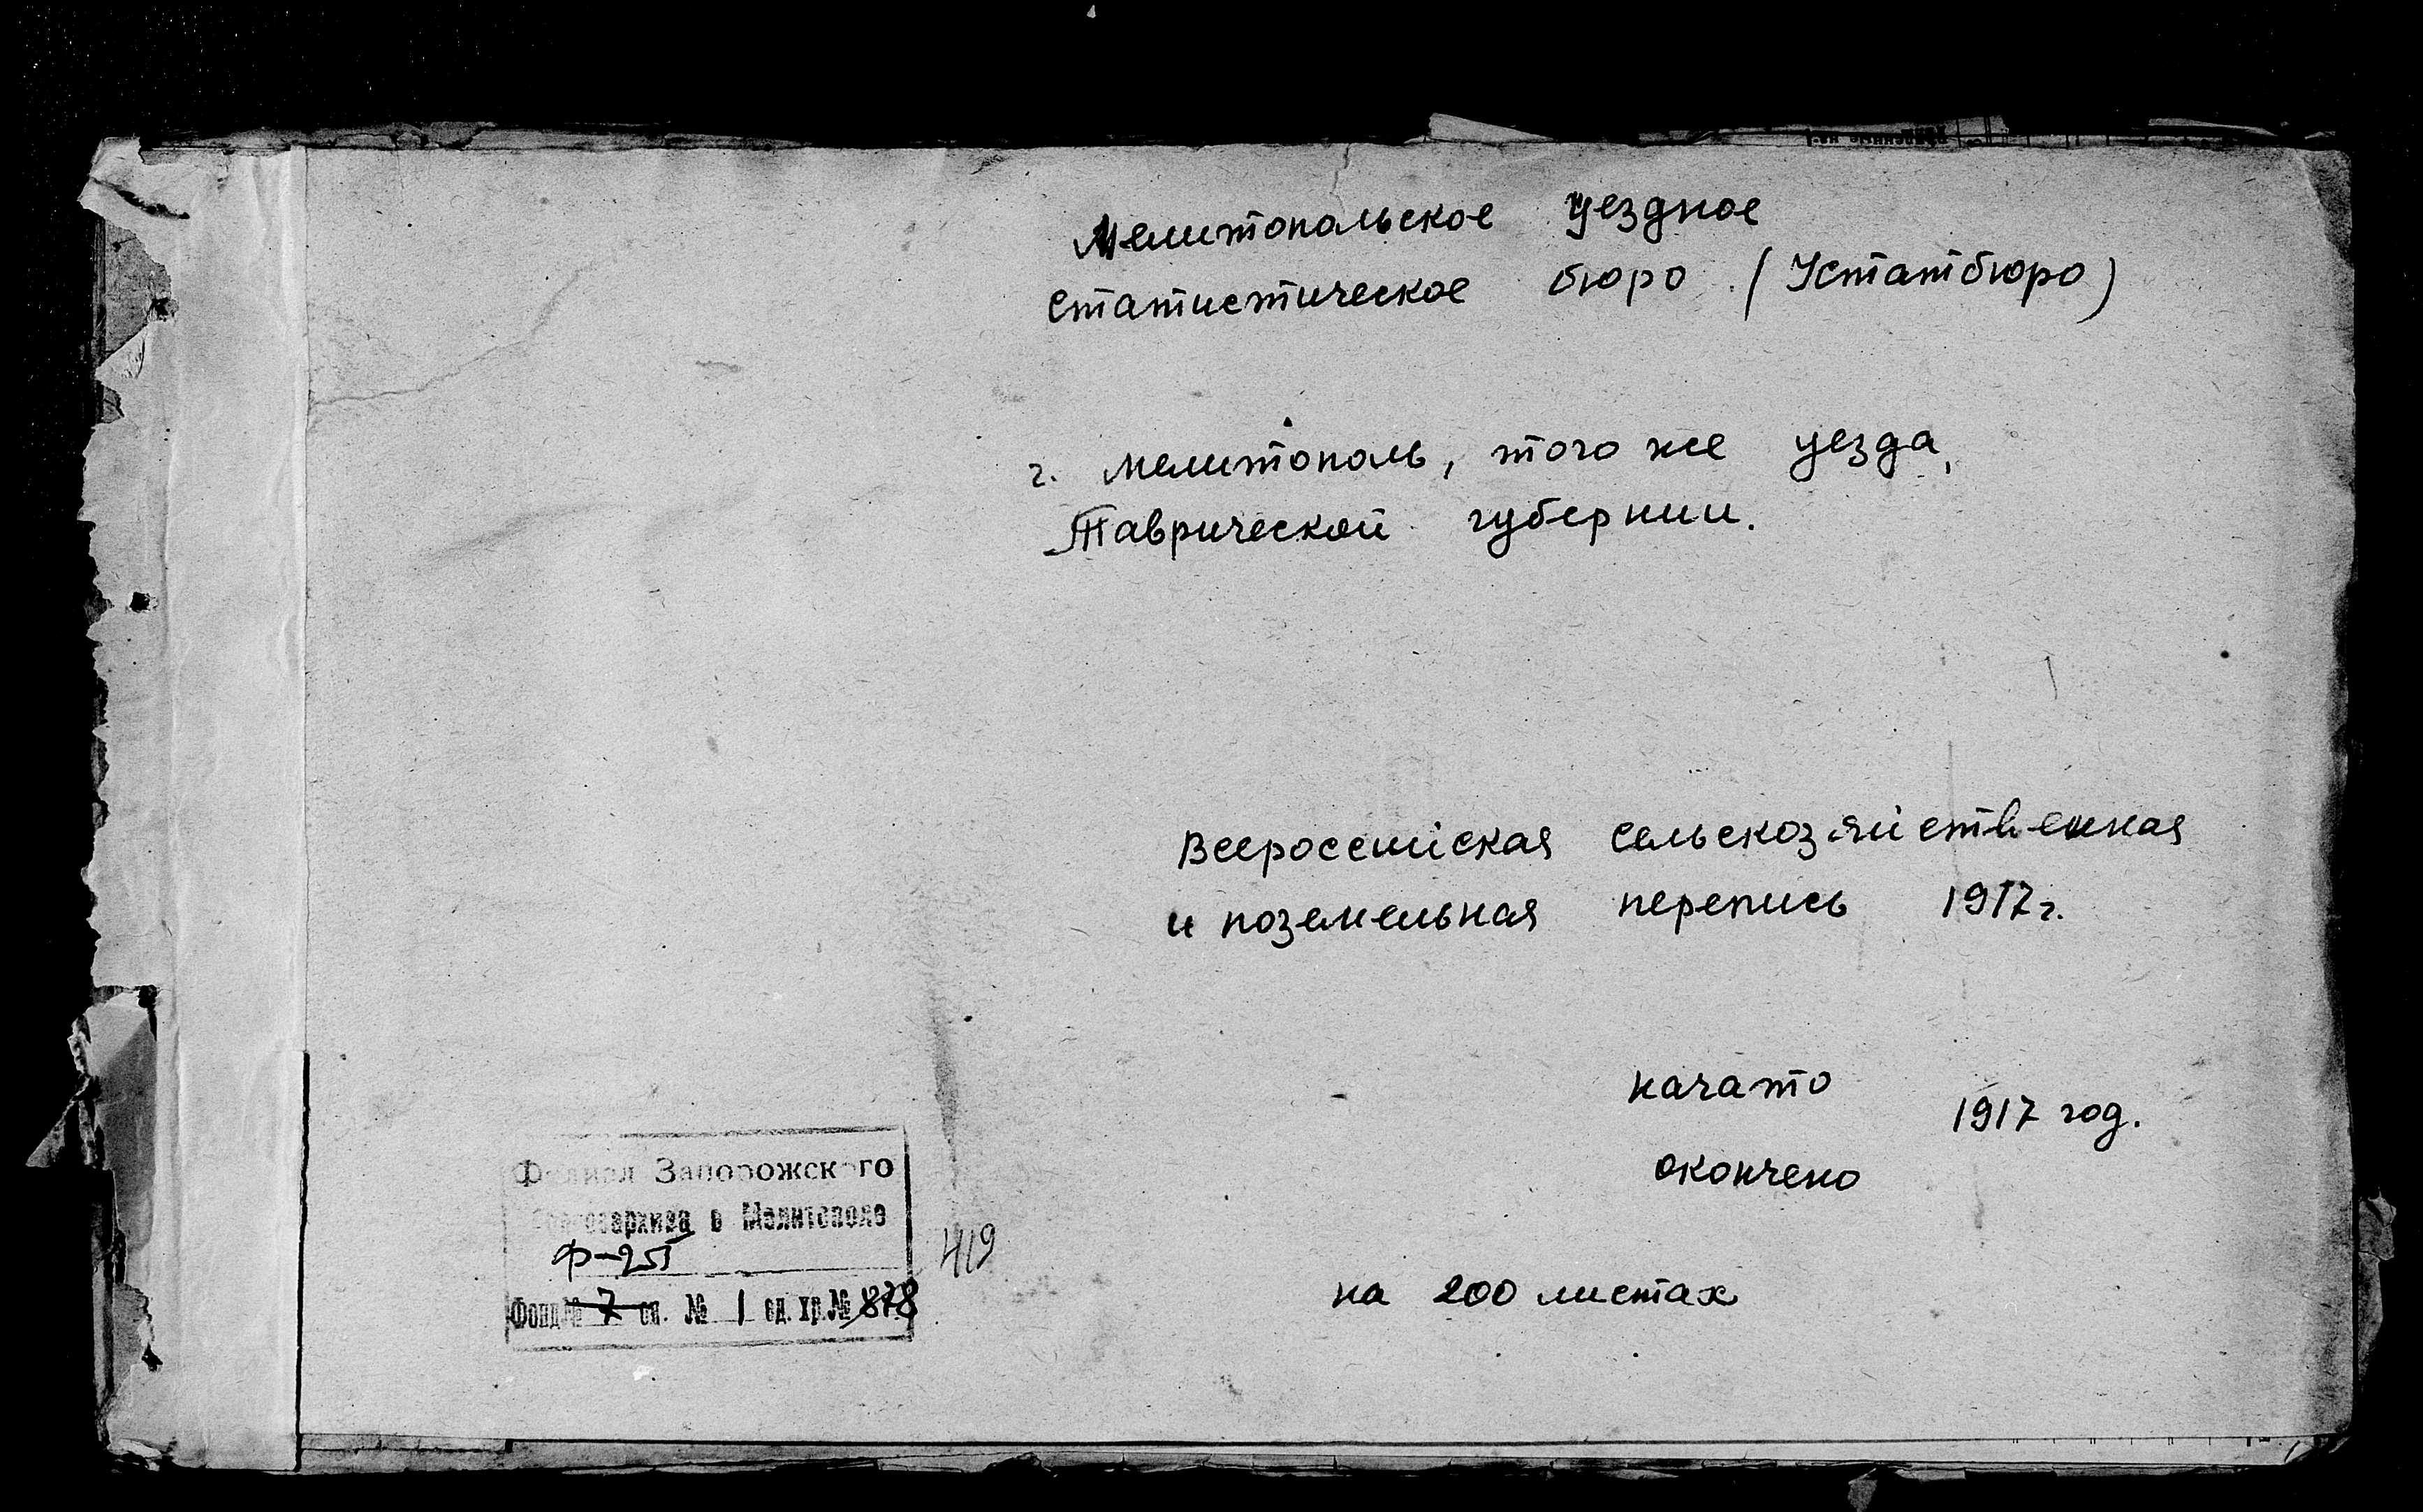 Мелитопольское уездное
статистическое бюро (Устатбюро)
г. Мелитополь, того же уезда,
Таврической губернии.
Всероссийская сельскозяйственная
и поземельная перепись 1917 г.
начато
1917 год.
окончено
на 200 листах
Филиал Запорожского
облгосархива в Мелитополе
ф-251
419
Фонд № 7 оп. № 1 ед. хр. № 878